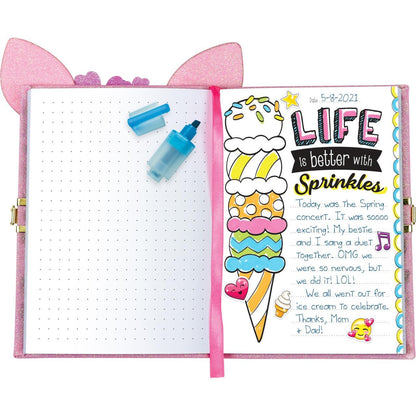 Date: 5-8-2021
LIFE
is better with
Sprinkles
Today was the Spring
concert. It was soooo
exciting! My bestie
and I sang a duet
together. OMG we
were so nervous, but
we did it! LOL!
We all went out for
ice cream to celebrate.
Thanks, Mom
+ Dad!